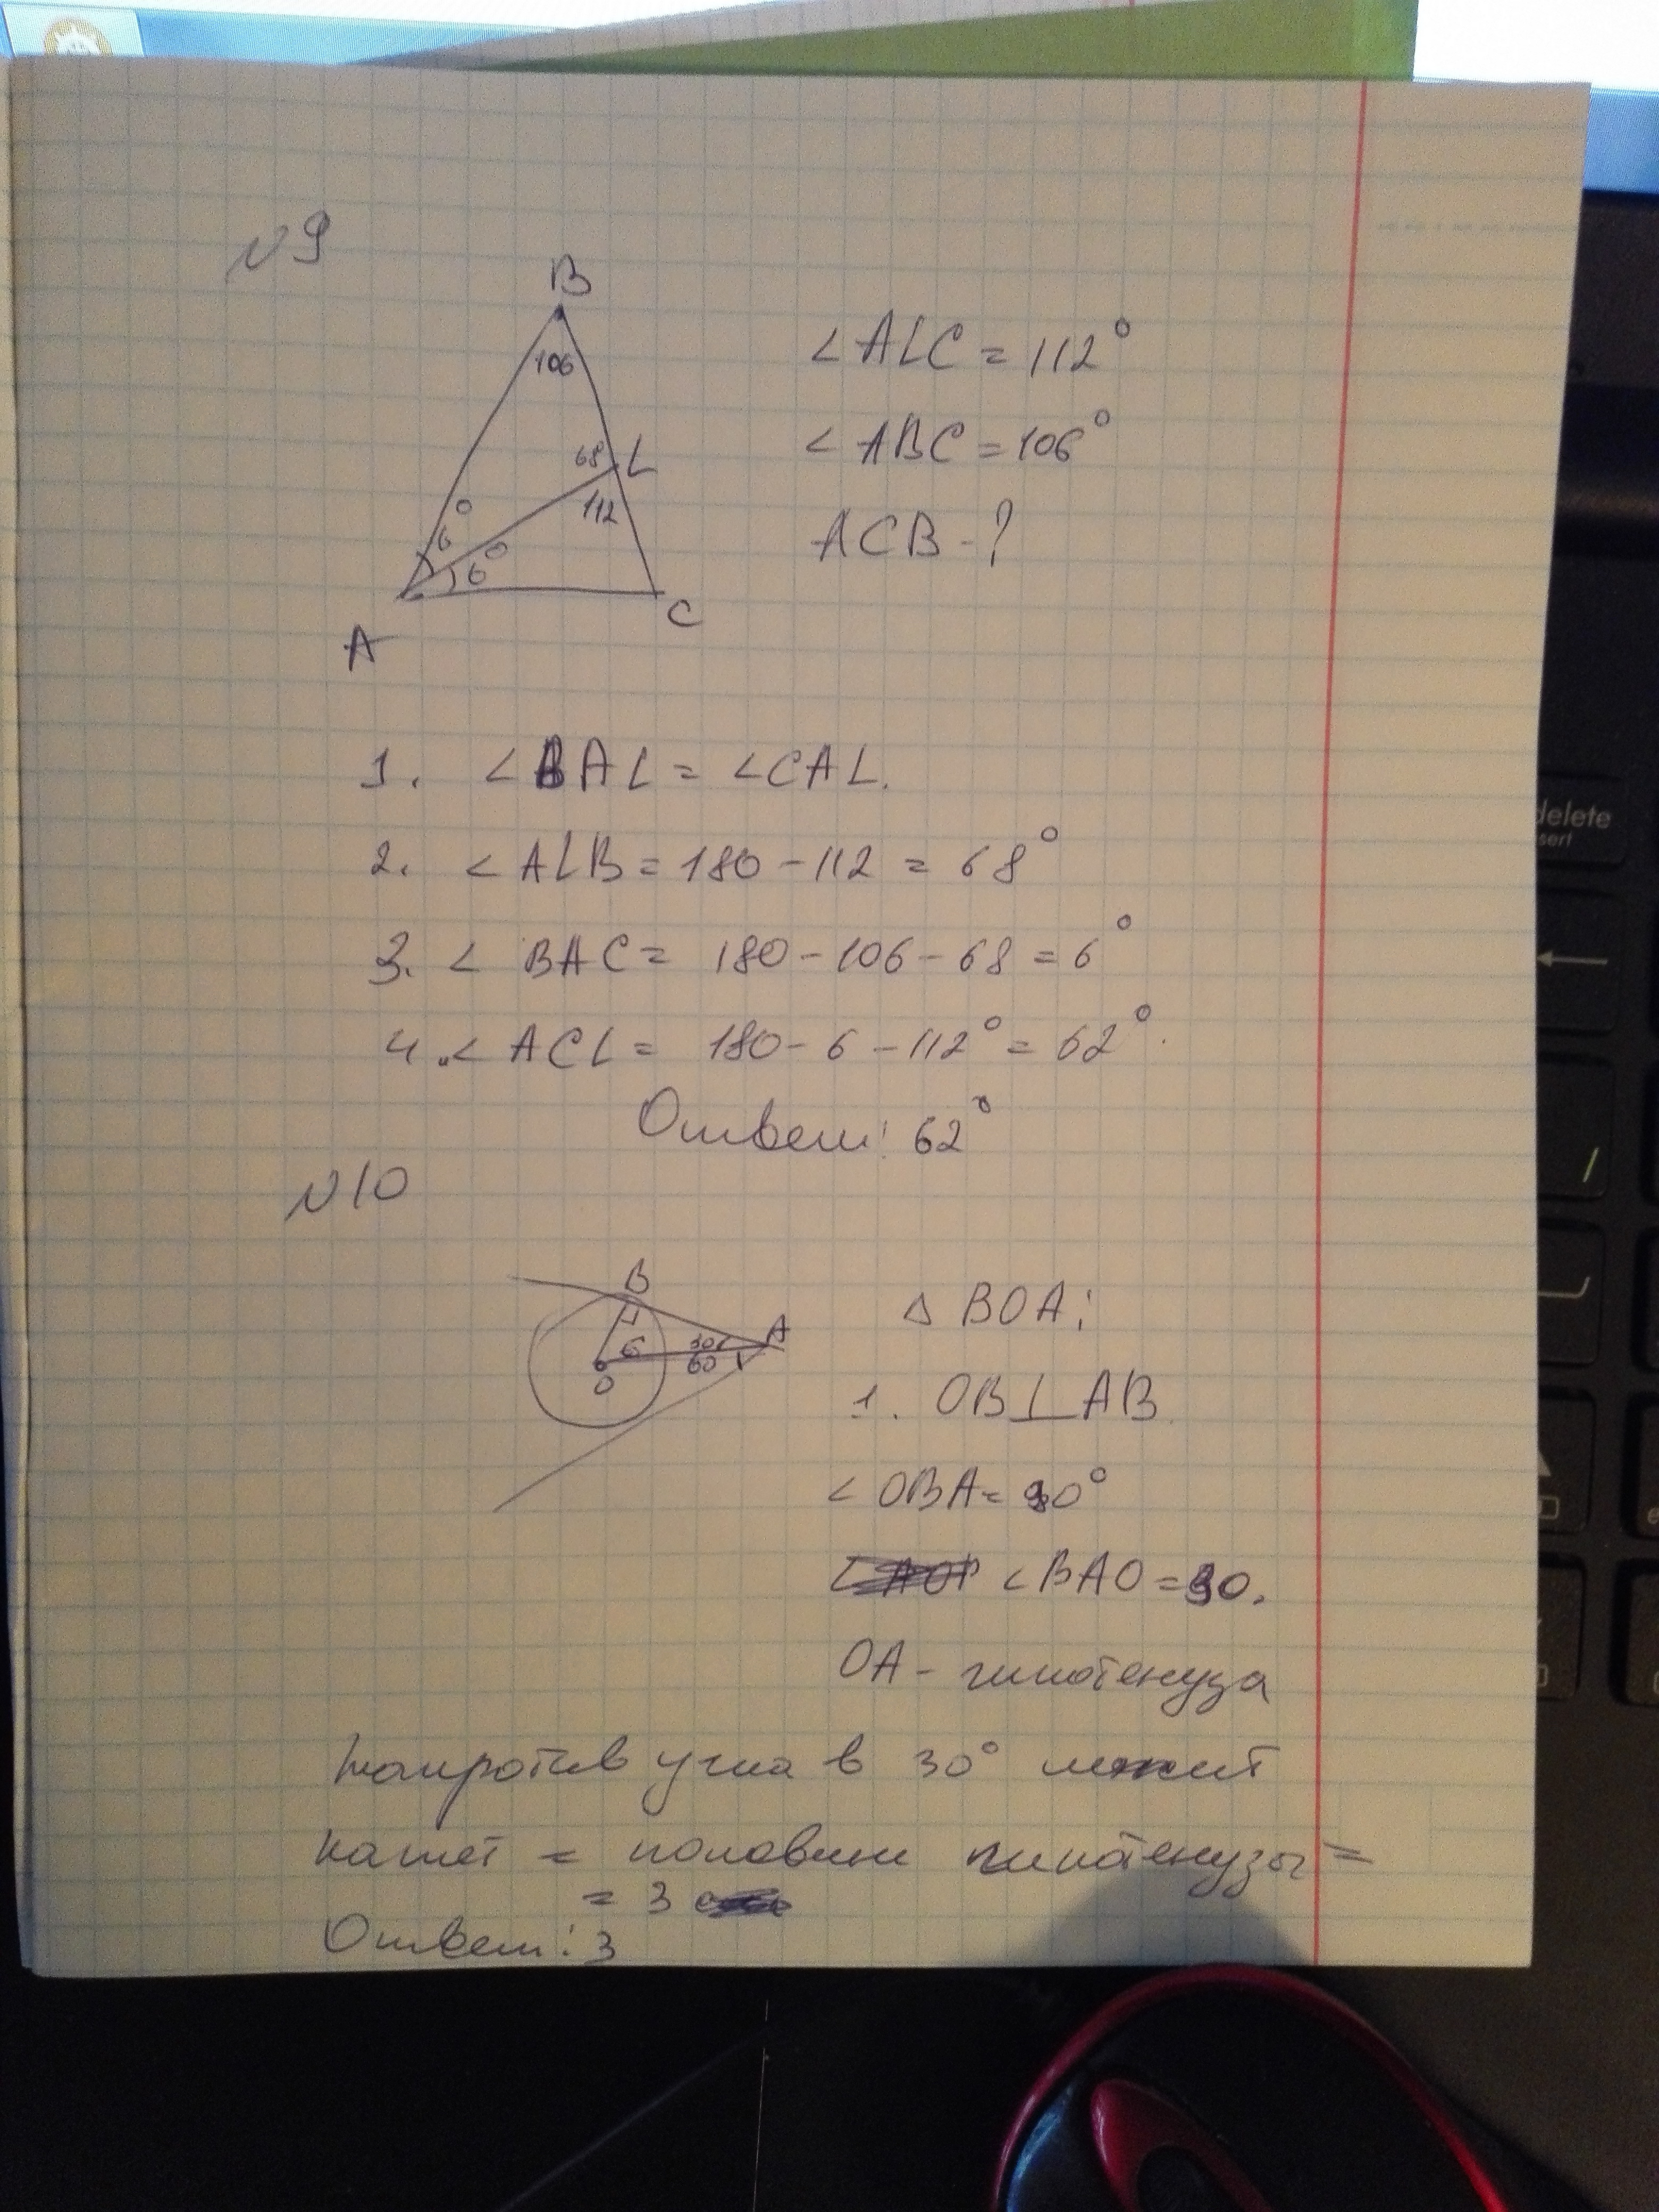 №9
B
106
68
L
112
6°
6°
A
C
∠ALC = 112°
∠ABC = 106°
ACB - ?
1. ∠BAL = ∠CAL.
2. ∠ALB = 180 - 112 = 68°
3. ∠BAC = 180 - 106 - 68 = 6°
4. ∠ACL = 180 - 6 - 112° = 62°.
Ответ: 62°
№10
B
A
30
60
6
O
△BOA:
1. OB⊥AB.
∠OBA = 90°
∠BAO = 30.
OA - гипотенуза
Напротив угла в 30° лежит
катет = половине гипотенузы =
= 3
Ответ: 3
delete